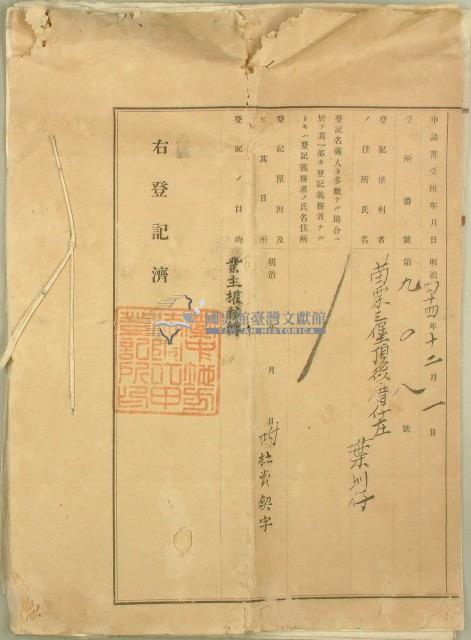 申請書受附年月日 明治四十四年十二月一日
受附番號 第九〇八號
登記權利者
ノ住所氏名
苗栗三堡頂後厝仔庄 葉圳仔
登記名義人カ多數ナル塲合ニ
於テ其一部カ登記義務者ナル
トキハ登記義務者ノ氏名住所
登記原因及
ヒ其日附
明治 年 月 日附杜賣契字
登記ノ目的 業主權移轉
右登記濟
國史館臺灣文獻館
TAIWAN HISTORICA